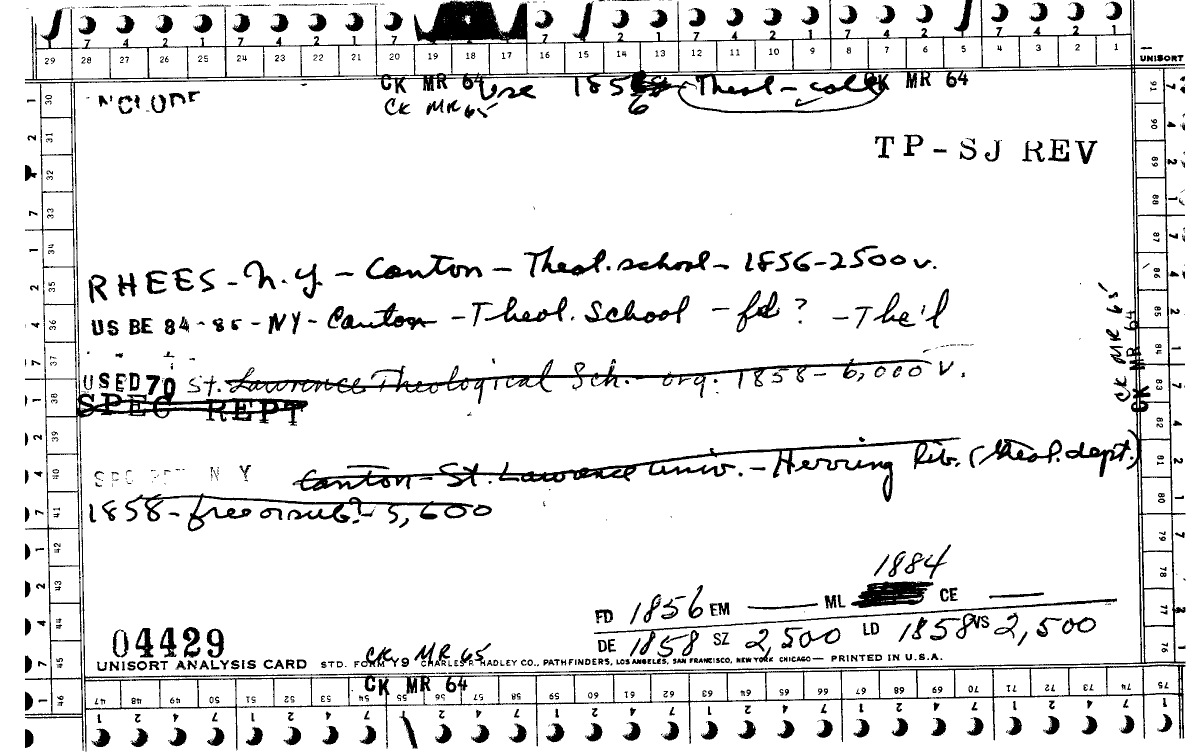 7 4 2 1 7 4 2 1 7 7 4 2 1 7 4 2 1 7 4 2 1
29 28 27 26 25 24 23 22 21 20 19 18 17 16 15 14 13 12 11 10 9 8 7 6 5 4 3 2 1
UNISORT
CK MR 64 use 1856 Theol-coll CK MR 64
CK MR 65
TP-SJ REV
RHEES - N.Y. - Canton - Theol. school - 1856-2500v.
US BE 84-85-NY- Canton - Theol. School - fd? - The'l
USED 70 St. Lawrence Theological Sch. - org. 1858 - 6,000 v.
SPEC REPT
N Y Canton - St. Lawrence Univ. - Herring lib. (theol. dept.)
1858 - free or sub? - 5,600
CK MR 65
CK MR 64
1884
FD 1856 EM — ML CE —
DE 1858 SZ 2,500 LD 1858 VS 2,500
04429
UNISORT ANALYSIS CARD STD. FORM Y9 CHARLES R. HADLEY CO., PATHFINDERS, LOS ANGELES, SAN FRANCISCO, NEW YORK CHICAGO — PRINTED IN U.S.A.
CK MR 65
CK MR 64
47 48 49 50 51 52 53 54 55 56 57 58 59 60 61 62 63 64 65 66 67 68 69 70 71 72 73 74 75